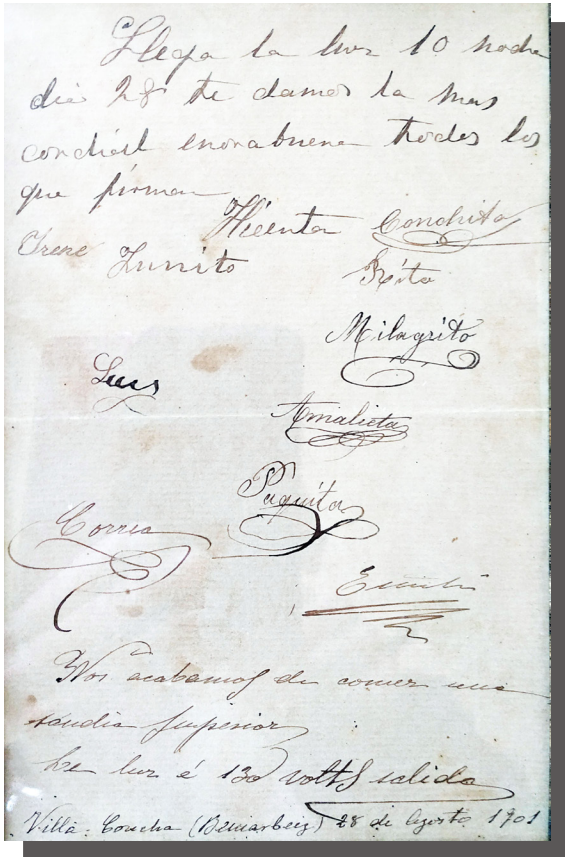 Llega la luz 10 noche
dia 28 te damos la mas
cordial enorabuena todos los
que firman
Conchita
Irene Junito
Rita
Milagrito
Luis
Amalieta
Paquita
Correa
Emilio
Nos acabamos de comer una
sandia superior
La luz á 130 volts salida
Villa Concha (Beniarbeig) 28 de Agosto 1901